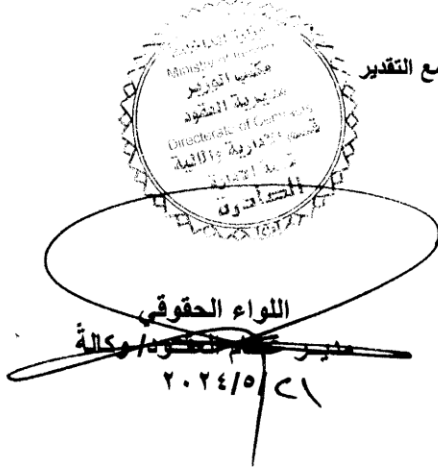 مع التقدير
Ministry of
مكتب الوزير
مديرية العقود
Directorate of Contracts
قسم الادارية والمالية
الصادرة
اللواء الحقوقي
مدير العقود/ وكالةً
٢٠٢٤/٥/٢١